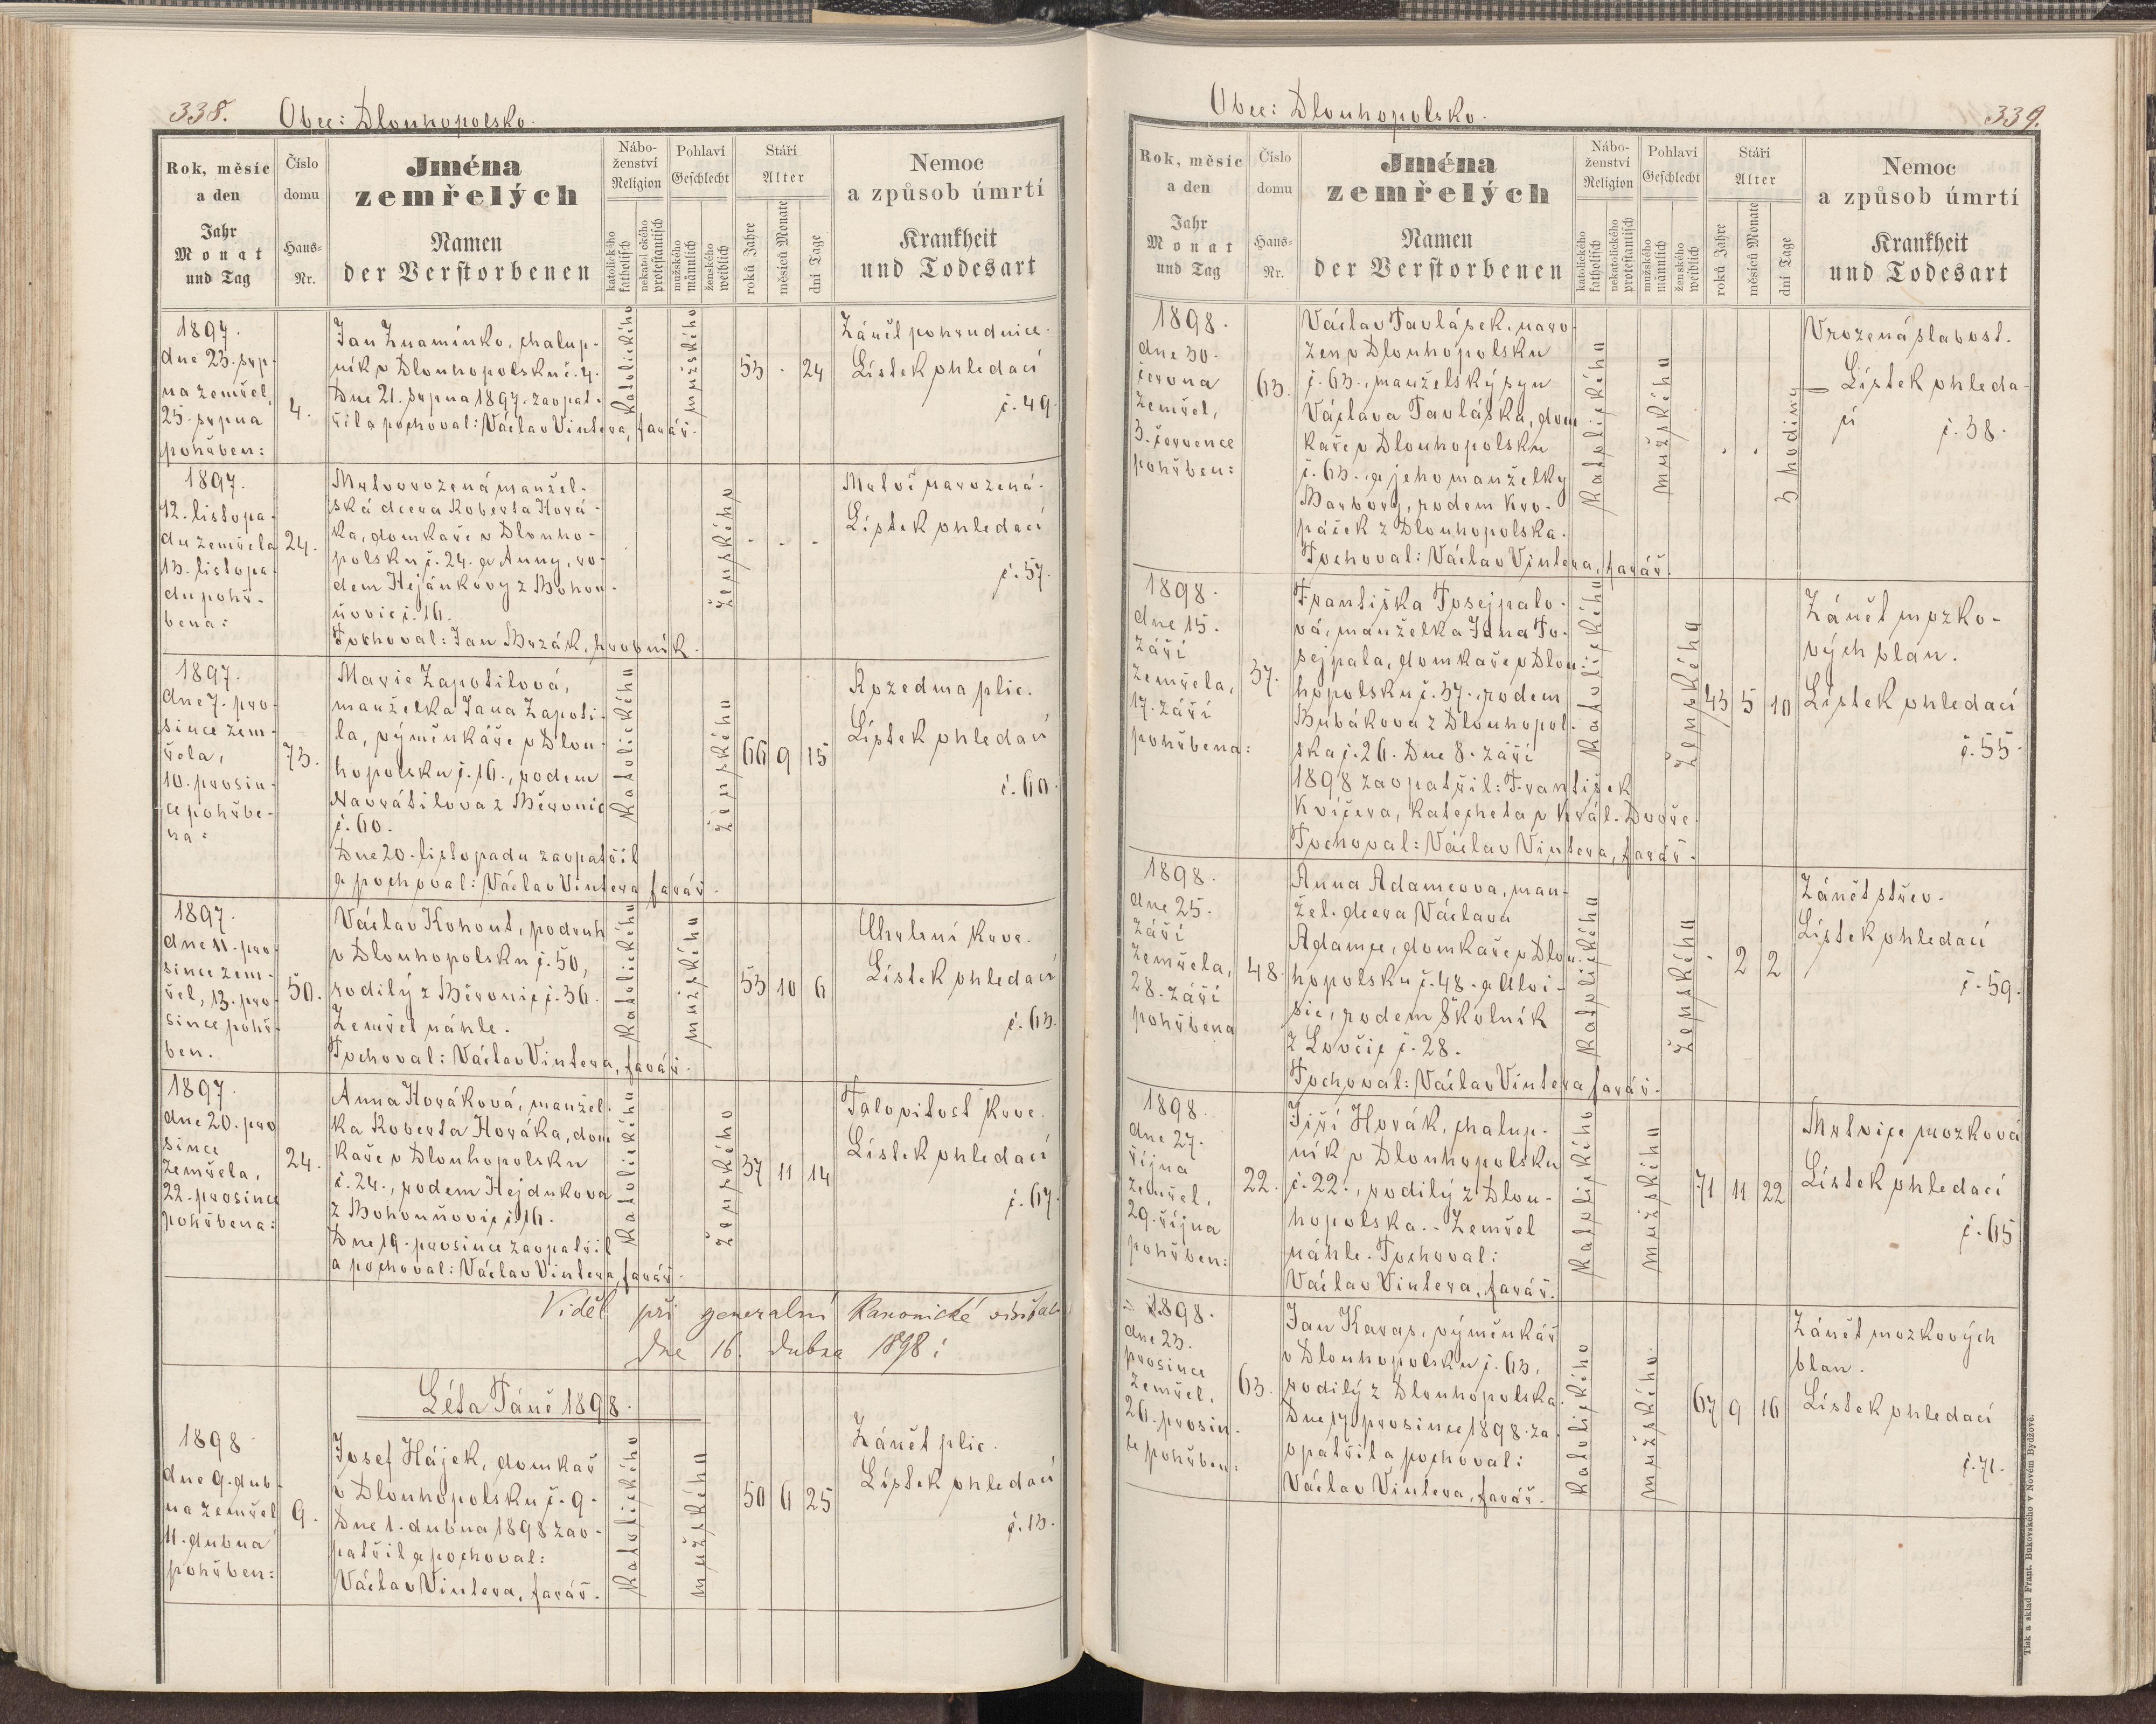 338.
Obec: Dlouhopolsko.
Rok, měsíc
a den
Jahr
Monat
und Tag
Číslo
domu
Haus-
Nr.
Jména
zemřelých
Namen
der Verstorbenen
Nábo-
ženství
Religion
katolického
katholisch
nekatolického
protestantisch
Pohlaví
Geschlecht
mužského
männlich
ženského
weiblich
Stáří
Alter
roků Jahre
měsíců Monate
dní Tage
Nemoc
a způsob úmrtí
Krankheit
und Todesart
1897.
dne 23. srp-
na zemřel,
25. srpna
pohřben:
4.
Jan Znamínko, chalup-
ník v Dlouhopolsku č. 4.
Dne 21. srpna 1897. zaopat-
řil a pochoval: Václav Vintera, farář.
katolického
mužského
53 . 24
Zánět pohrudnice.
Lístek ohledací
č. 49.
1897.
12. listopa-
du zemřela
13. listopa-
du pohř-
bena:
24.
Mrtvorozená manžel-
ská dcera Roberta Horá-
ka, domkáře v Dlouho-
polsku č. 24. a Anny, ro-
dem Hejdukovy z Bohou-
ňovic č. 16.
Pochoval: Jan Mrzák, hrobník.
ženského
. . .
Mrtvě narozená.
Lístek ohledací
č. 57.
1897.
dne 7. pro-
since zem-
řela,
10. prosin-
ce pohřbe-
na:
73.
Marie Zapotilová,
manželka Jana Zapoti-
la, výměnkáře v Dlou-
hopolsku č. 16., rodem
Navrátilova z Běronic
č. 60.
Dne 20. listopadu zaopatřil
a pochoval: Václav Vintera farář.
katolického
ženského
66 9 15
Rozedma plic.
Lístek ohledací
č. 60.
1897.
dne 11. pro-
since zem-
řel, 13. pro-
since pohř-
ben.
50.
Václav Kohout, podruh
v Dlouhopolsku č. 50,
rodilý z Běronic č. 36.
Zemřel náhle.
Pochoval: Václav Vintera, farář.
katolického
mužského
53 10 6
Chrlení krve.
Lístek ohledací
č. 63.
1897.
dne 20. pro-
since
zemřela,
22. prosince
pohřbena:
24.
Anna Horáková, manžel-
ka Roberta Horáka, dom-
káře v Dlouhopolsku
č. 24., rodem Hejdukova
z Bohouňovic č. 16.
Dne 19. prosince zaopatřil
a pochoval: Václav Vintera, farář.
katolického
ženského
37 11 14
Jalovitost krve.
Lístek ohledací
č. 67.
Viděl při generalní kanonické visitaci
dne 16. dubna 1898:
Léta Páně 1898.
1898.
dne 9. dub-
na zemřel
11. dubna
pohřben:
9.
Josef Hájek, domkář
v Dlouhopolsku č. 9.
Dne 1. dubna 1898 zao-
patřil a pochoval:
Václav Vintera, farář.
katolického
mužského
50 6 25
Zánět plic.
Lístek ohledací
č. 13.
Obec: Dlouhopolsko.
339.
Rok, měsíc
a den
Jahr
Monat
und Tag
Číslo
domu
Haus-
Nr.
Jména
zemřelých
Namen
der Verstorbenen
Nábo-
ženství
Religion
katolického
katholisch
nekatolického
protestantisch
Pohlaví
Geschlecht
mužského
männlich
ženského
weiblich
Stáří
Alter
roků Jahre
měsíců Monate
dní Tage
Nemoc
a způsob úmrtí
Krankheit
und Todesart
1898.
dne 30.
června
zemřel,
3. července
pohřben:
63.
Václav Pavlásek, naro-
zen v Dlouhopolsku
č. 63., manželský syn
Václava Pavláska, dom-
káře v Dlouhopolsku
č. 63. a jeho manželky
Barbory, rodem Kro-
páček z Dlouhopolska.
Pochoval: Václav Vintera, farář.
katolického
mužského
. . 3 hodiny
Vrozená slabost.
Lístek ohleda-
cí č. 38.
1898.
dne 15.
září
zemřela,
17. září
pohřbena:
37.
Františka Posejpalo-
vá, manželka Jana Po-
sejpala, domkáře v Dlou-
hopolsku č. 37., rodem
Bubákova z Dlouhopol-
ska č. 26. Dne 8. září
1898 zaopatřil: František
Kvíčera, katecheta v Král. Dvoře.
Pochoval: Václav Vintera, farář.
katolického
ženského
43 5 10
Zánět mozko-
vých blan.
Lístek ohledací
č. 55.
1898.
dne 25.
září
zemřela,
28. září
pohřbena
48.
Anna Adamcova, man-
žel. dcera Václava
Adamce, domkáře v Dlou-
hopolsku č. 48. a Aloi-
sie, rodem Školník
z Lovčic č. 28.
Pochoval: Václav Vintera farář.
katolického
ženského
. 2 2
Zánět střev.
Lístek ohledací
č. 59.
1898.
dne 27.
října
zemřel,
29. října
pohřben:
22.
Jiří Horák, chalup-
ník v Dlouhopolsku
č. 22., rodilý z Dlou-
hopolska. - Zemřel
náhle. Pochoval:
Václav Vintera, farář.
katolického
mužského
71 11 22
Mrtvice mozková
Lístek ohledací
č. 65
1898.
dne 23.
prosince
zemřel,
26. prosin-
ce pohřben:
63.
Jan Karas, výměnkář
v Dlouhopolsku č. 63,
rodilý z Dlouhopolska.
Dne 17. prosince 1898. za-
opatřil a pochoval:
Václav Vintera, farář.
katolického
mužského.
67 9 16
Zánět mozkových
blan.
Lístek ohledací
č. 71.
Tisk a sklad Frant. Bukovského v Novém Bydžově.